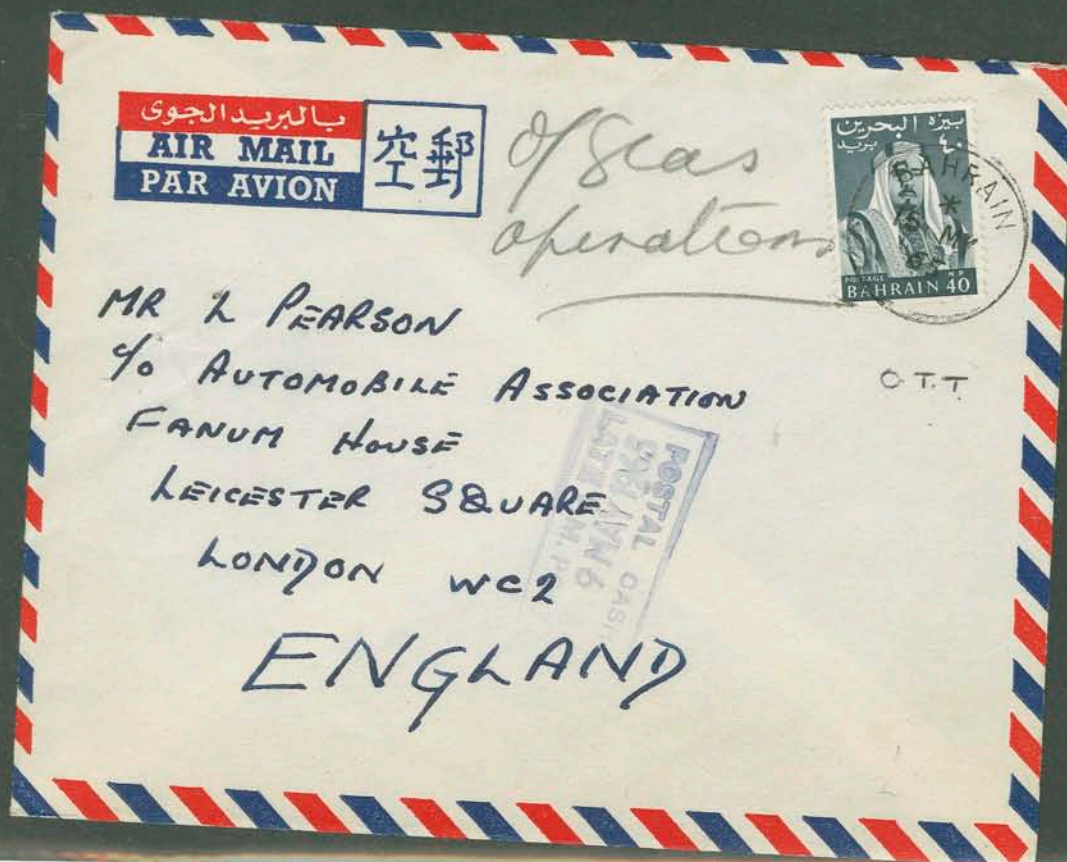 بالبريد الجوى
AIR MAIL
PAR AVION
空郵
O/Seas
operations
بيزه البحرين
٤٠ بريد
POSTAGE N.P.
BAHRAIN 40
BAHRAIN
MR L PEARSON
C/O AUTOMOBILE ASSOCIATION
FANUM HOUSE
LEICESTER SQUARE
LONDON WC2
ENGLAND
O.T.T.
POSTAL CASH
MAY
LATE